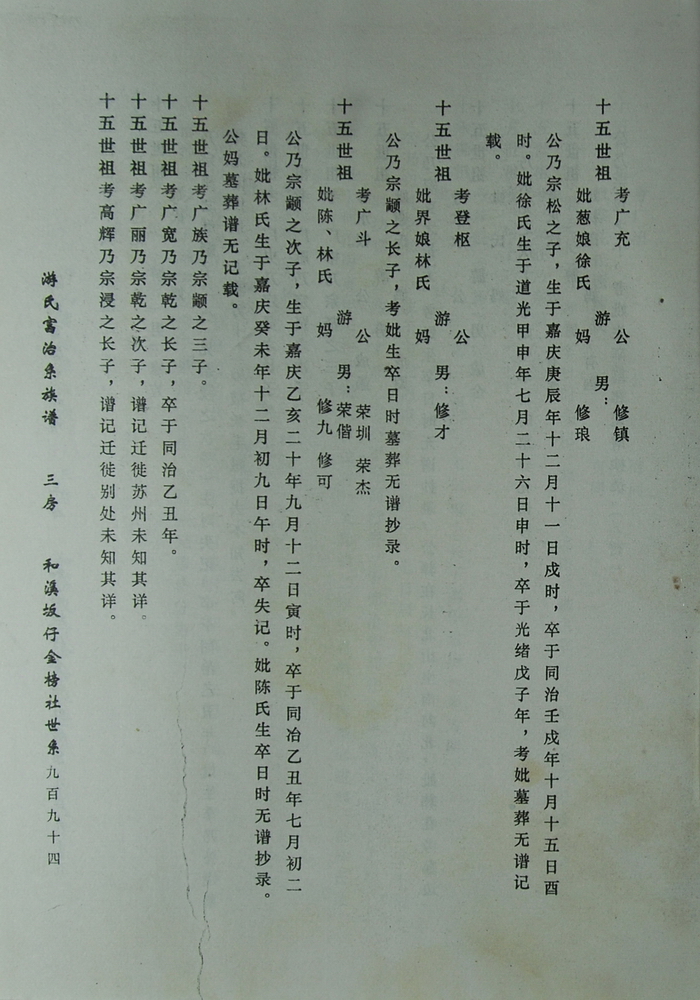 考广充　　公　　修镇
十五世祖　　游　男：
妣葱娘徐氏　　妈　　修琅
公乃宗松之子，生于嘉庆庚辰年十二月十一日戍时，卒于同治壬戍年十月十五日酉
时。妣徐氏生于道光甲申年七月二十六日申时，卒于光绪戊子年，考妣墓葬无谱记
载。
考登枢　　公
十五世祖　　游　男：修才
妣界娘林氏　　妈
公乃宗颛之长子，考妣生卒日时墓葬无谱抄录。
考广斗　　公　　荣圳　荣杰
十五世祖　　游　男：荣偕
妣陈、林氏　　妈　　修九　修可
公乃宗颛之次子，生于嘉庆乙亥二十年九月十二日寅时，卒于同冶乙丑年七月初二
日。妣林氏生于嘉庆癸未年十二月初九日午时，卒失记。妣陈氏生卒日时无谱抄录。
公妈墓葬谱无记载。
十五世祖考广族乃宗颛之三子。
十五世祖考广宽乃宗乾之长子，卒于同治乙丑年。
十五世祖考广丽乃宗乾之次子，谱记迁徙苏州未知其详。
十五世祖考高辉乃宗浸之长子，谱记迁徙别处未知其详。
游氏富治系族谱　三房　和溪坂仔金榜社世系九百九十四